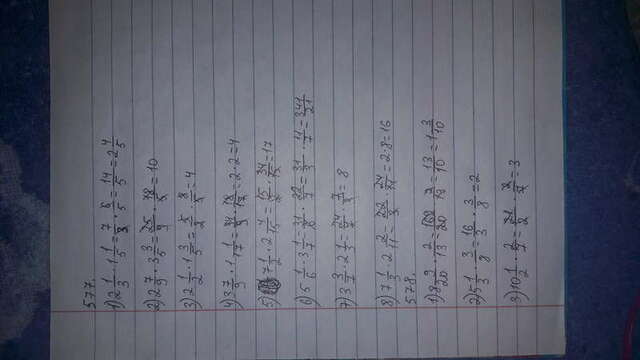 577.
1) 2 1/3 · 1 1/5 = 7/3 · 6/5 = 14/5 = 2 4/5
2) 2 7/9 · 3 3/5 = 25/9 · 18/5 = 10
3) 2 1/2 · 1 3/5 = 5/2 · 8/5 = 4
4) 3 7/9 · 1 1/17 = 34/9 · 18/17 = 2 · 2 = 4
5) 7 1/2 · 2 4/15 = 15/2 · 34/15 = 17
6) 5 1/6 · 3 1/7 = 31/6 · 22/7 = 31/3 · 11/7 = 341/21
7) 3 3/7 · 2 1/3 = 24/7 · 7/3 = 8
8) 7 1/3 · 2 2/11 = 22/3 · 24/11 = 2 · 8 = 16
578.
1) 8 9/20 · 2/13 = 169/20 · 2/13 = 13/10 = 1 3/10
2) 5 1/3 · 3/8 = 16/3 · 3/8 = 2
3) 10 1/2 · 2/7 = 21/2 · 2/7 = 3